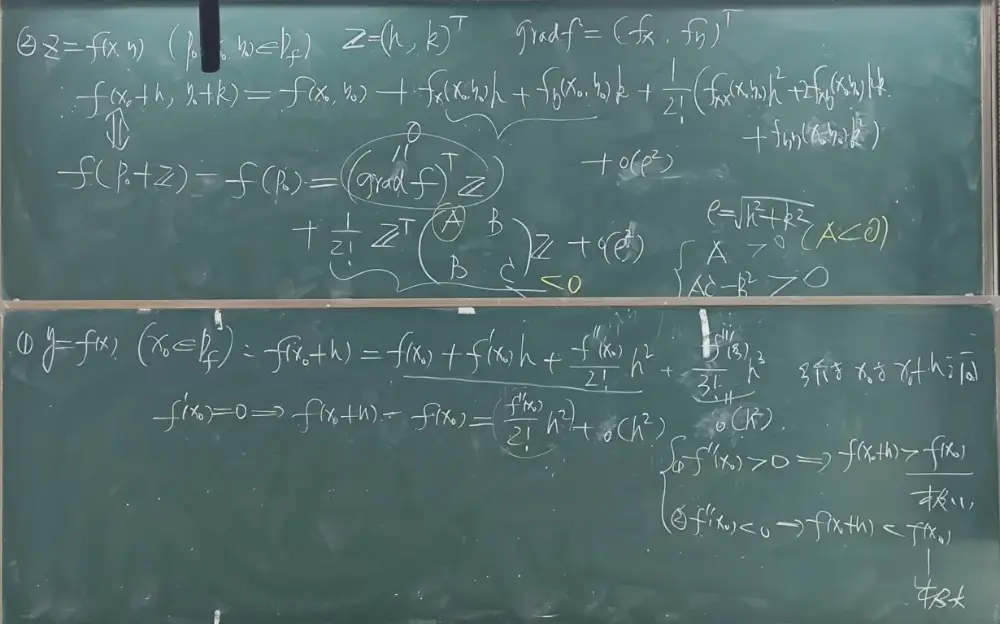 ② z=f(x,y) (p₀ x₀,y₀)∈D_f) Z=(h,k)ᵀ gradf=(fx, fy)ᵀ
f(x₀+h, y₀+k)=f(x₀,y₀)+fx(x₀,y₀)h+fy(x₀,y₀)k+1/2!(fxx(x₀,y₀)h²+2fxy(x₀,y₀)hk
+fyy(x₀,y₀)k²)
+o(ρ²)
0
f(p₀+Z)-f(p₀)=(grad f)ᵀZ
ρ=√h²+k²
+1/2! Zᵀ(A B
B C)Z+o(ρ²)
<0
{A>0 (A<0)
AC-B²>0
① y=f(x) (x₀∈D_f): f(x₀+h)=f(x₀)+f'(x₀)h+f''(x₀)/2! h²+f'''(ξ)/3! h³ ξ介于x₀与x₀+h之间
o(h²)
f'(x₀)=0⇒f(x₀+h)-f(x₀)=(f''(x₀)/2! h²)+o(h²)
{① f''(x₀)>0⇒f(x₀+h)>f(x₀)
极小
② f''(x₀)<0⇒f(x₀+h)<f(x₀)
极大